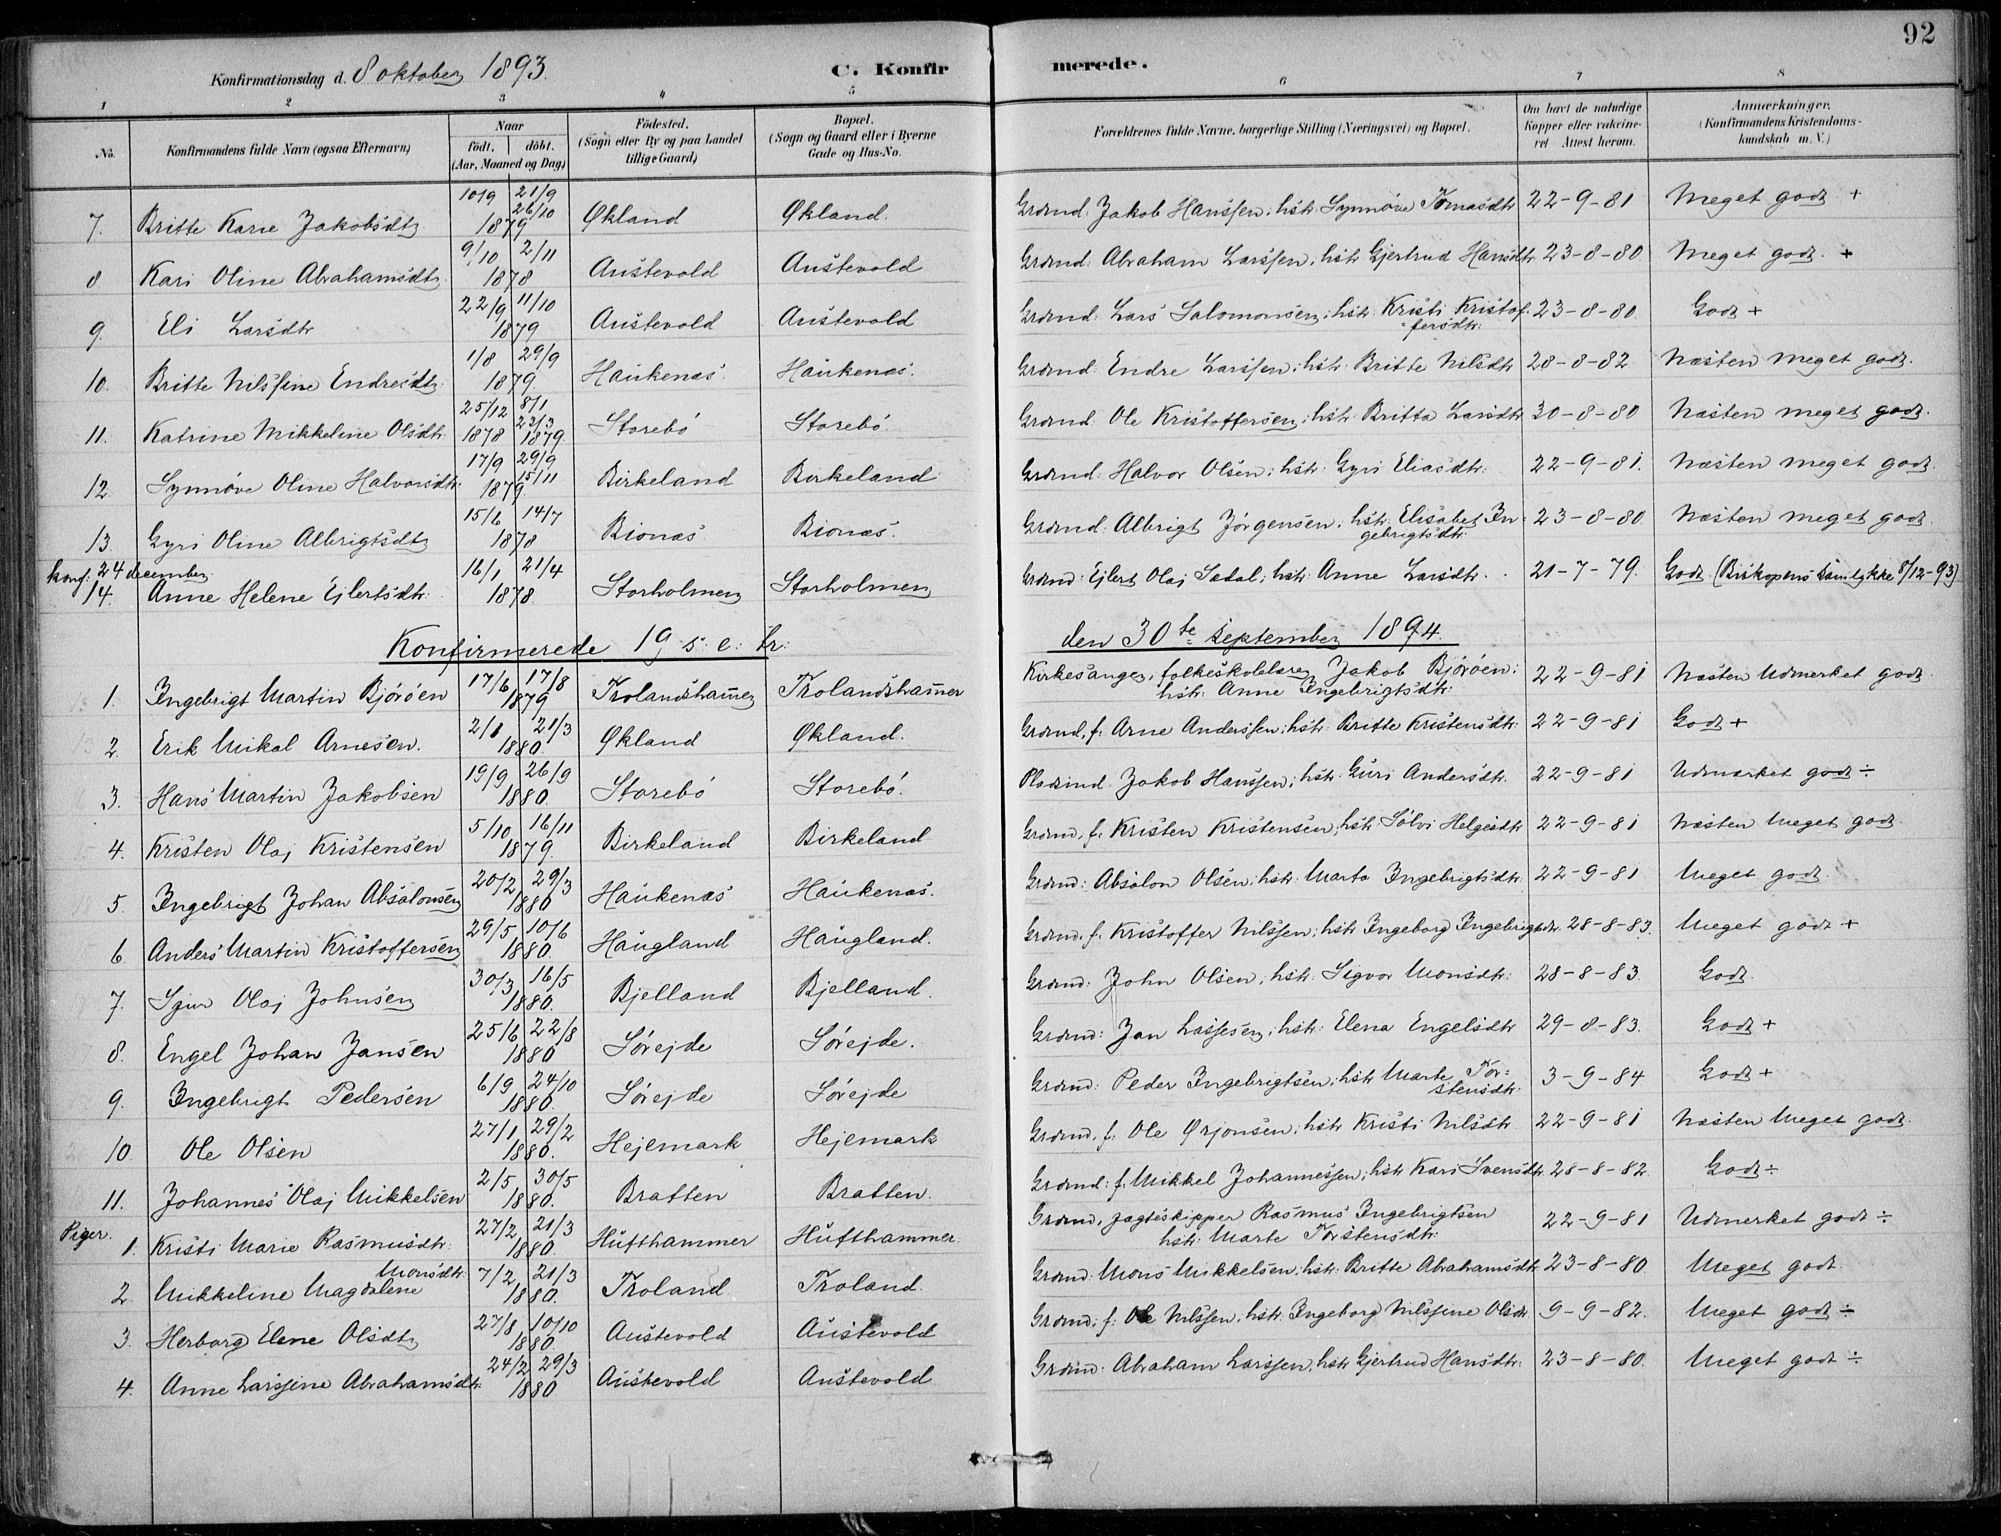 92
Konfirmationsdag d. 8 oktober 1893. C. Konfirmerede.
1 2 3 4 5 6 7 8
No. Konfirmandens fulde Navn (ogsaa Efternavn) Naar födt. döbt. (Aar, Maaned og Dag) Födested. (Sogn eller By og paa Landet tillige Gaard) Bopæl. (Sogn og Gaard eller i Byerne Gade og Hus-No. Forældrenes fulde Navne, borgerlige Stilling (Næringsvei) og Bopæl. Om havt de naturlige Kopper eller vakcineret Attest herom. Anmærkninger. (Konfirmandens Kristendomskundskab m. V.)
7. Britte Karie Jakobsdtr 10/9 21/9 26/10 1879 Økland Økland. Grdmd. Jakob Hanssen; hstr Synnöve Tomasdtr 22-9-81 Meget godt +
8 Kari Oline Abrahamsdtr 9/10 2/11 1878 Austevold Austevold Grdmd: Abraham Larssen; hstr Gjertrud Hansdtr 23-8-80. Meget godt. +
9. Eli Larsdtr 22/9 11/10 1879 Austevold Austevold Grdmd: Lars Salomonsen; hstr: Kristi Kristofersdtr: 23-8-80. Godt +
10. Britte Nilssine Endresdtr 1/8 29/9 1879. Haukenæs. Haukenæs. Grdmd: Endre Larssen; hstr: Britte Nilsdtr 28-8-82. Næsten meget godt.
11. Katrine Mikkeline Olsdtr. 25/12 1878 8/1 23/3 1879. Storebö Storebö. Grdmd: Ole Kristoffersen; hstr: Britta Larsdtr 30-8-80 Næsten meget godt.
12. Synnöve Oline Halvorsdtr. 17/9 29/9 15/11 1879 Birkeland Birkeland Grdmd: Halvor Olsen; hstr: Gyri Eliasdtr: 22-9-81. Næsten meget godt.
13. Gyri Oline Albrigtsdtr 15/6 14/7 1878 Bionæs Bionæs. Grdmd. Albrigt Jörgensen, hstr: Elisabet Ingebrigtsdtr: 23-8-80. Næsten meget godt.
konf: 24 december
14. Anne Helene Ejlertsdtr. 16/1 21/4 1878. Storholmen Storholmen Grdmd: Ejlert Olaj Sædal; hstr: Anne Larsdtr. 21-7-79. Godt. (Biskopens Samtykke 8/12-93)
Konfirmerede 19 s: e: tr: den 30te September 1894.
1. Ingebrigt Martin Björöen 17/6 17/8 1879 Trolandshamner Trolandshamner Kirkesanger, folkeskolelærer Jakob Björöen; hstr: Anne Ingebrigtsdtr: 22-9-81 Næsten Udmerket godt
2. Erik Mikal Arnesen. 2/1 21/3 1880. Økland Økland. Grdmd, f: Arne Anderssen; hstr: Britte Kristensdtr: 22-9-81 Godt +
3. Hans Martin Jakobsen 19/9 26/9 1880. Storebö Storebö. Pladsmd. Jakob Hanssen; hstr: Guri Andersdtr. 22-9-81 Udmærket godt ÷
4. Kristen Olaj Kristensen 5/10 16/11 1879. Birkeland Birkeland Grdmd, f: Kristen Kristensen, hstr: Sölvi Helgesdtr 22-9-81 Næsten Meget godt.
5. Ingebrigt Johan Absalonsen 20/2 29/3 1880 Haukenæs Haukenæs. Grdmd: Absalon Olsen; hstr: Marta Ingebrigtsdtr: 22-9-81 Meget godt.
6. Anders Martin Kristoffersen 29/5 10/6 1880. Haugland Haugland. Grdmd, f: Kristoffer Nilssen; hstr Ingeborg Ingebrigtsdtr. 28-8-83. Meget godt +
7. Sjur Olaj Johnsen 30/3 16/5 1880. Bjelland Bjelland. Grdmd: John Olsen, hstr: Sigvor Monsdtr: 28-8-83. Godt.
8. Engel Johan Jansen 25/6 22/8 1880 Sörejde Sörejde. Grdmd: Jan Lassesen; hstr: Elena Engelsdtr 29-8-83. Godt +
9. Ingebrigt Pedersen 6/9 24/10 1880. Sörejde Sörejde Grdmd: Peder Ingebrigtsen; hstr Marte Torstensdtr: 3-9-84 Godt +
10. Ole Olsen 27/1 29/2 1880. Hejemark Hejemark Grdmd, f: Ole Ørjansen; hstr Kristi Nilsdtr. 22-9-81 Næsten Meget godt.
11. Johannes Olaj Mikkelsen 2/5 30/5 1880. Bratten Bratten. Grdmd: f: Mikkel Johannessen; hstr Kari Svensdtr 28-8-82. Godt ÷
Piger.
1. Kristi Marie Rasmusdtr: 27/2 21/3 1880 Hufthammer Hufthammer. Grdmd, jagteskipper Rasmus Ingebrigtsen hstr: Marte Torstensdtr: 22-9-81 Udmerket godt ÷
2. Mikkeline Magdalene Monsdtr: 7/2 21/3 1880. Troland. Troland. Grdmd: Mons Mikkelsen; hstr: Britte Abrahamsdtr 23-8-80. Meget godt.
3. Herborg Elene Olsdtr 27/8 10/10 1880. Austevold Austevold Grdmd, f: Ole Nilssen; hstr. Ingeborg Nilssine Olsdtr 9-9-82. Meget godt ÷
4. Anne Larssine Abrahamsdtr: 24/2 29/3 1880 Austevold Austevold Grdmd: Abraham Larssen, hstr Gjertrud Hansdtr: 23-8-80. Meget godt ÷